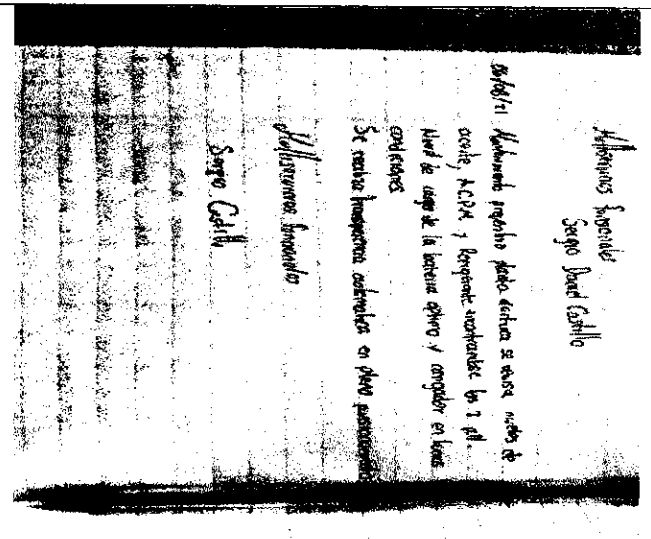 Multiservicios Empresariales
Sergio David Castillo
06/08/21 Mantenimiento preventivo planta eléctrica se revisa niveles de
aceite, A.C.P.M y Refrigerante encontrandose los
Nivel de carga de la bateria optimo y cargador en buenas
condiciones
Se realiza transferencia automatica en pleno
Sergio Castillo